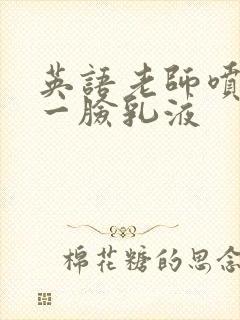 英語老師噴
一臉乳液
棉花糖的思念